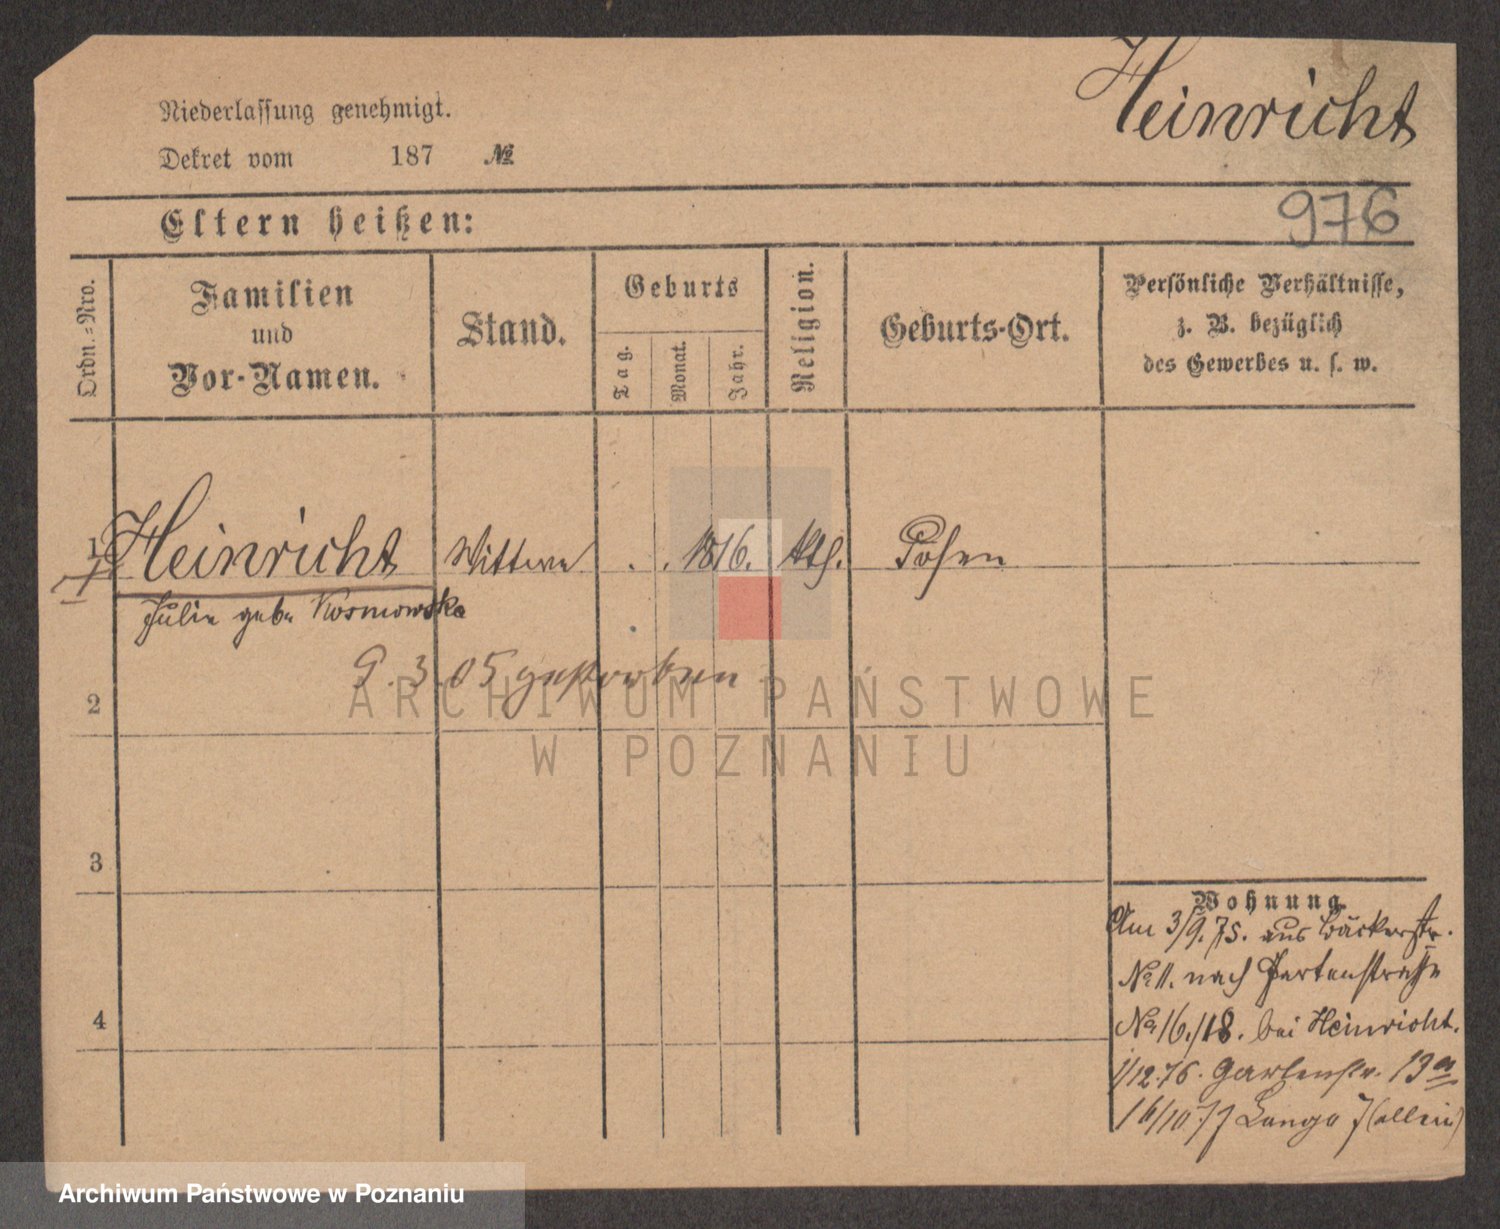 Heinricht
Niederlassung genehmigt.
Dekret vom 187 №
976
Eltern heißen:
Ordn.=Nro.
Familien
und
Vor-Namen.
Stand.
Geburts
Tag.
Monat.
Jahr.
Religion.
Geburts-Ort.
Persönliche Verhältnisse,
z. B. bezüglich
des Gewerbes u. s. w.
1 Heinricht Wittwe . . 1816. kth. Posen
Julie geb. Kosmowska
9.3.05 gestorben
2
3
4
Wohnung.
Am 3/9.75. aus Bäckerstr.
No 11. nach Gartenstraße
No 16./18. bei Heinricht.
1/12.76. Gartenstr. 13a
16/10 77 Lange 7 (allein)
ARCHIWUM PAŃSTWOWE
W POZNANIU
Archiwum Państwowe w Poznaniu